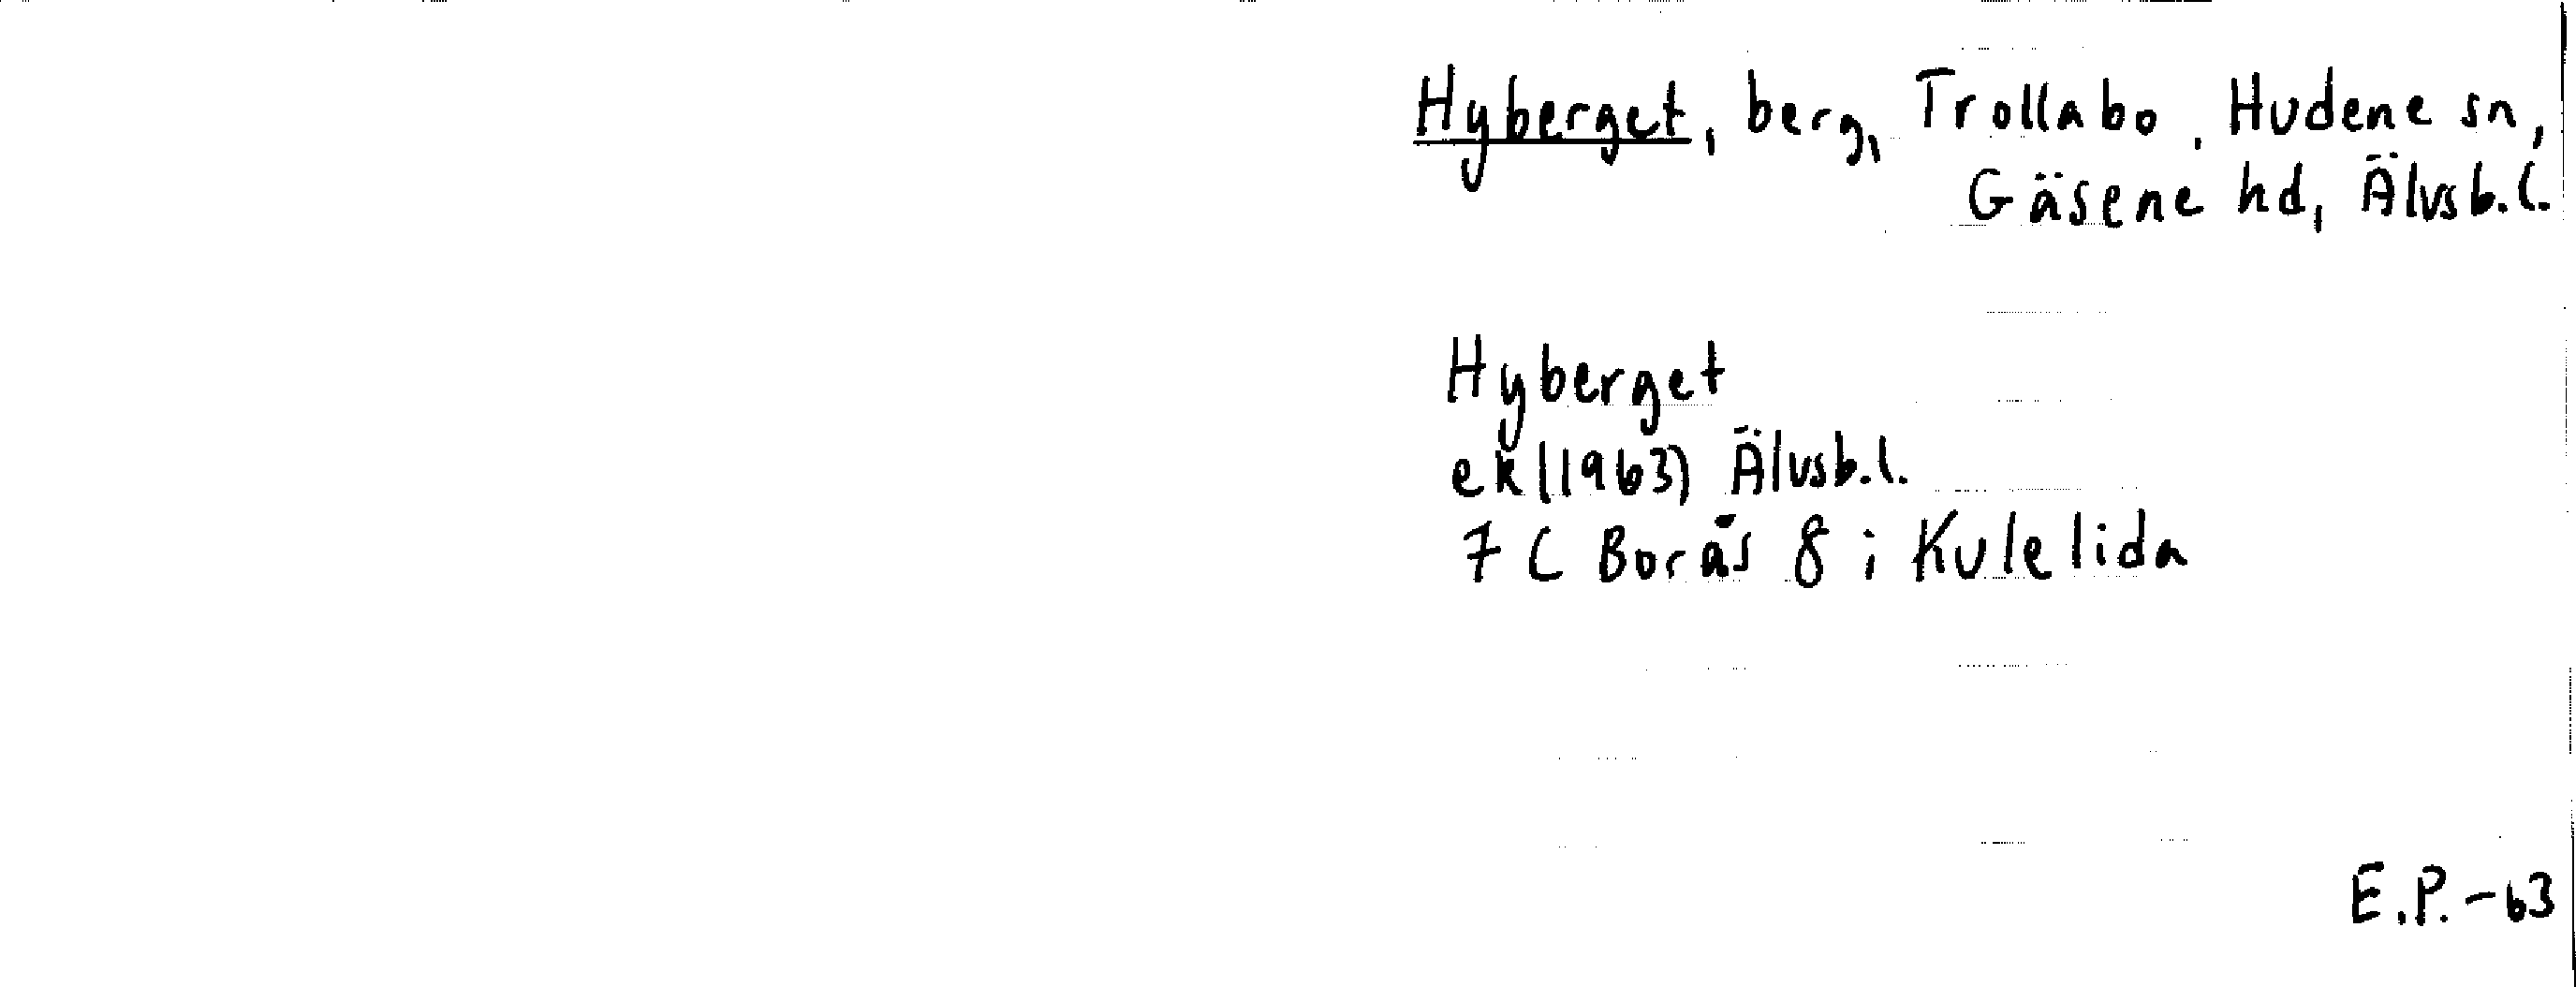 Hyberget, berg, Trollabo, Hudene sn,
Gäsene hd, Älvsb.l.
Hyberget
ek (1963) Älvsb.l.
7 C Borås 8 i Kulelida
E.P.-63